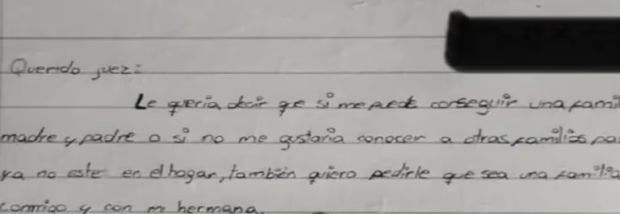 Querido juez:
Le queria decir qe si me pede conseguir una fami
madre y padre o si no me gustaria conocer a otras familias pa
ya no este en el hogar, también quiero pedirle que sea una familia
conmigo y con mi hermana.